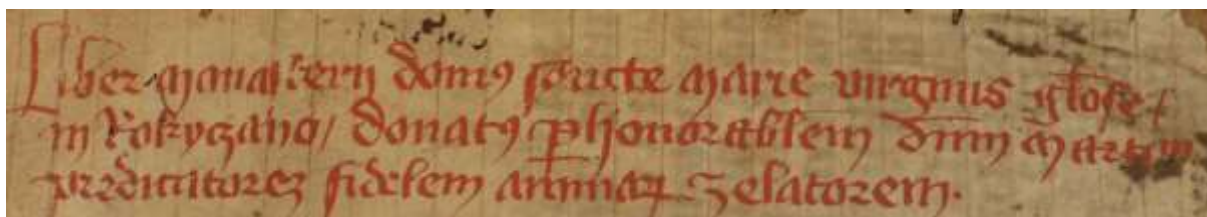 Liber monasterij domus sancte marie virginis gl'ose
in Rokyczano / donatus p honorabilem dnm martin
predicatorem fidelem animarum zelatorem.